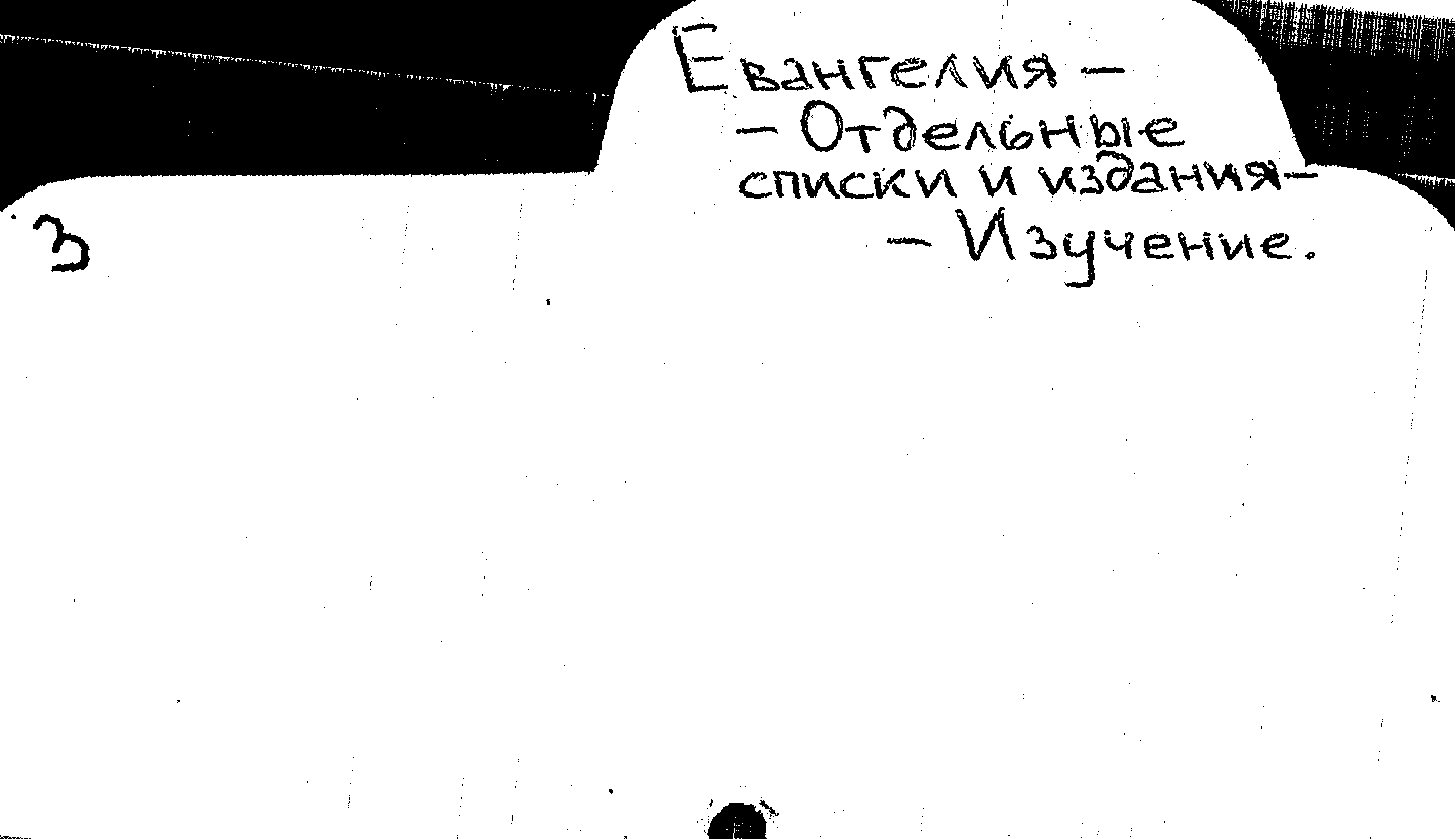 Евангелия –
– Отдельные
списки и издания–
– Изучение.
3